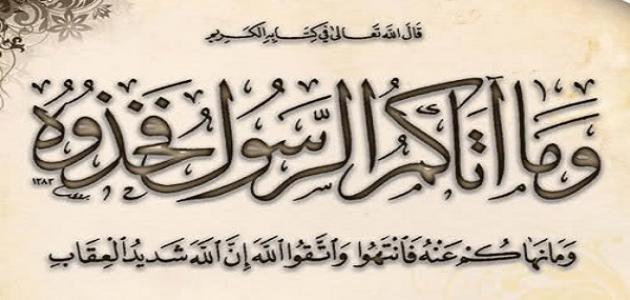 قَالَ اللهُ تَعَالىٰ فِي كِتَابِهِ الْكَرِيمِ
وَمَا آتَاكُمُ الرَّسُولُ فَخُذُوهُ
١٣٨٣
وَمَا نَهَاكُمْ عَنْهُ فَانْتَهُوا وَاتَّقُوا اللهَ إِنَّ اللهَ شَدِيدُ الْعِقَابِ